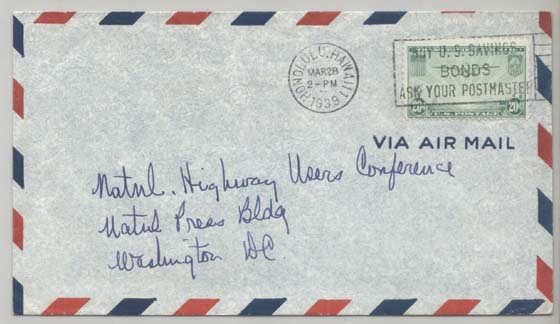 HONOLULU, HAWAII 1
MAR 28
2-PM
1939
BUY U.S. SAVINGS
BONDS
ASK YOUR POSTMASTER
20¢ 20¢
U.S. POSTAGE
VIA AIR MAIL
Natnl. Highway Users Conference
Natnl Press Bldg
Washington DC.